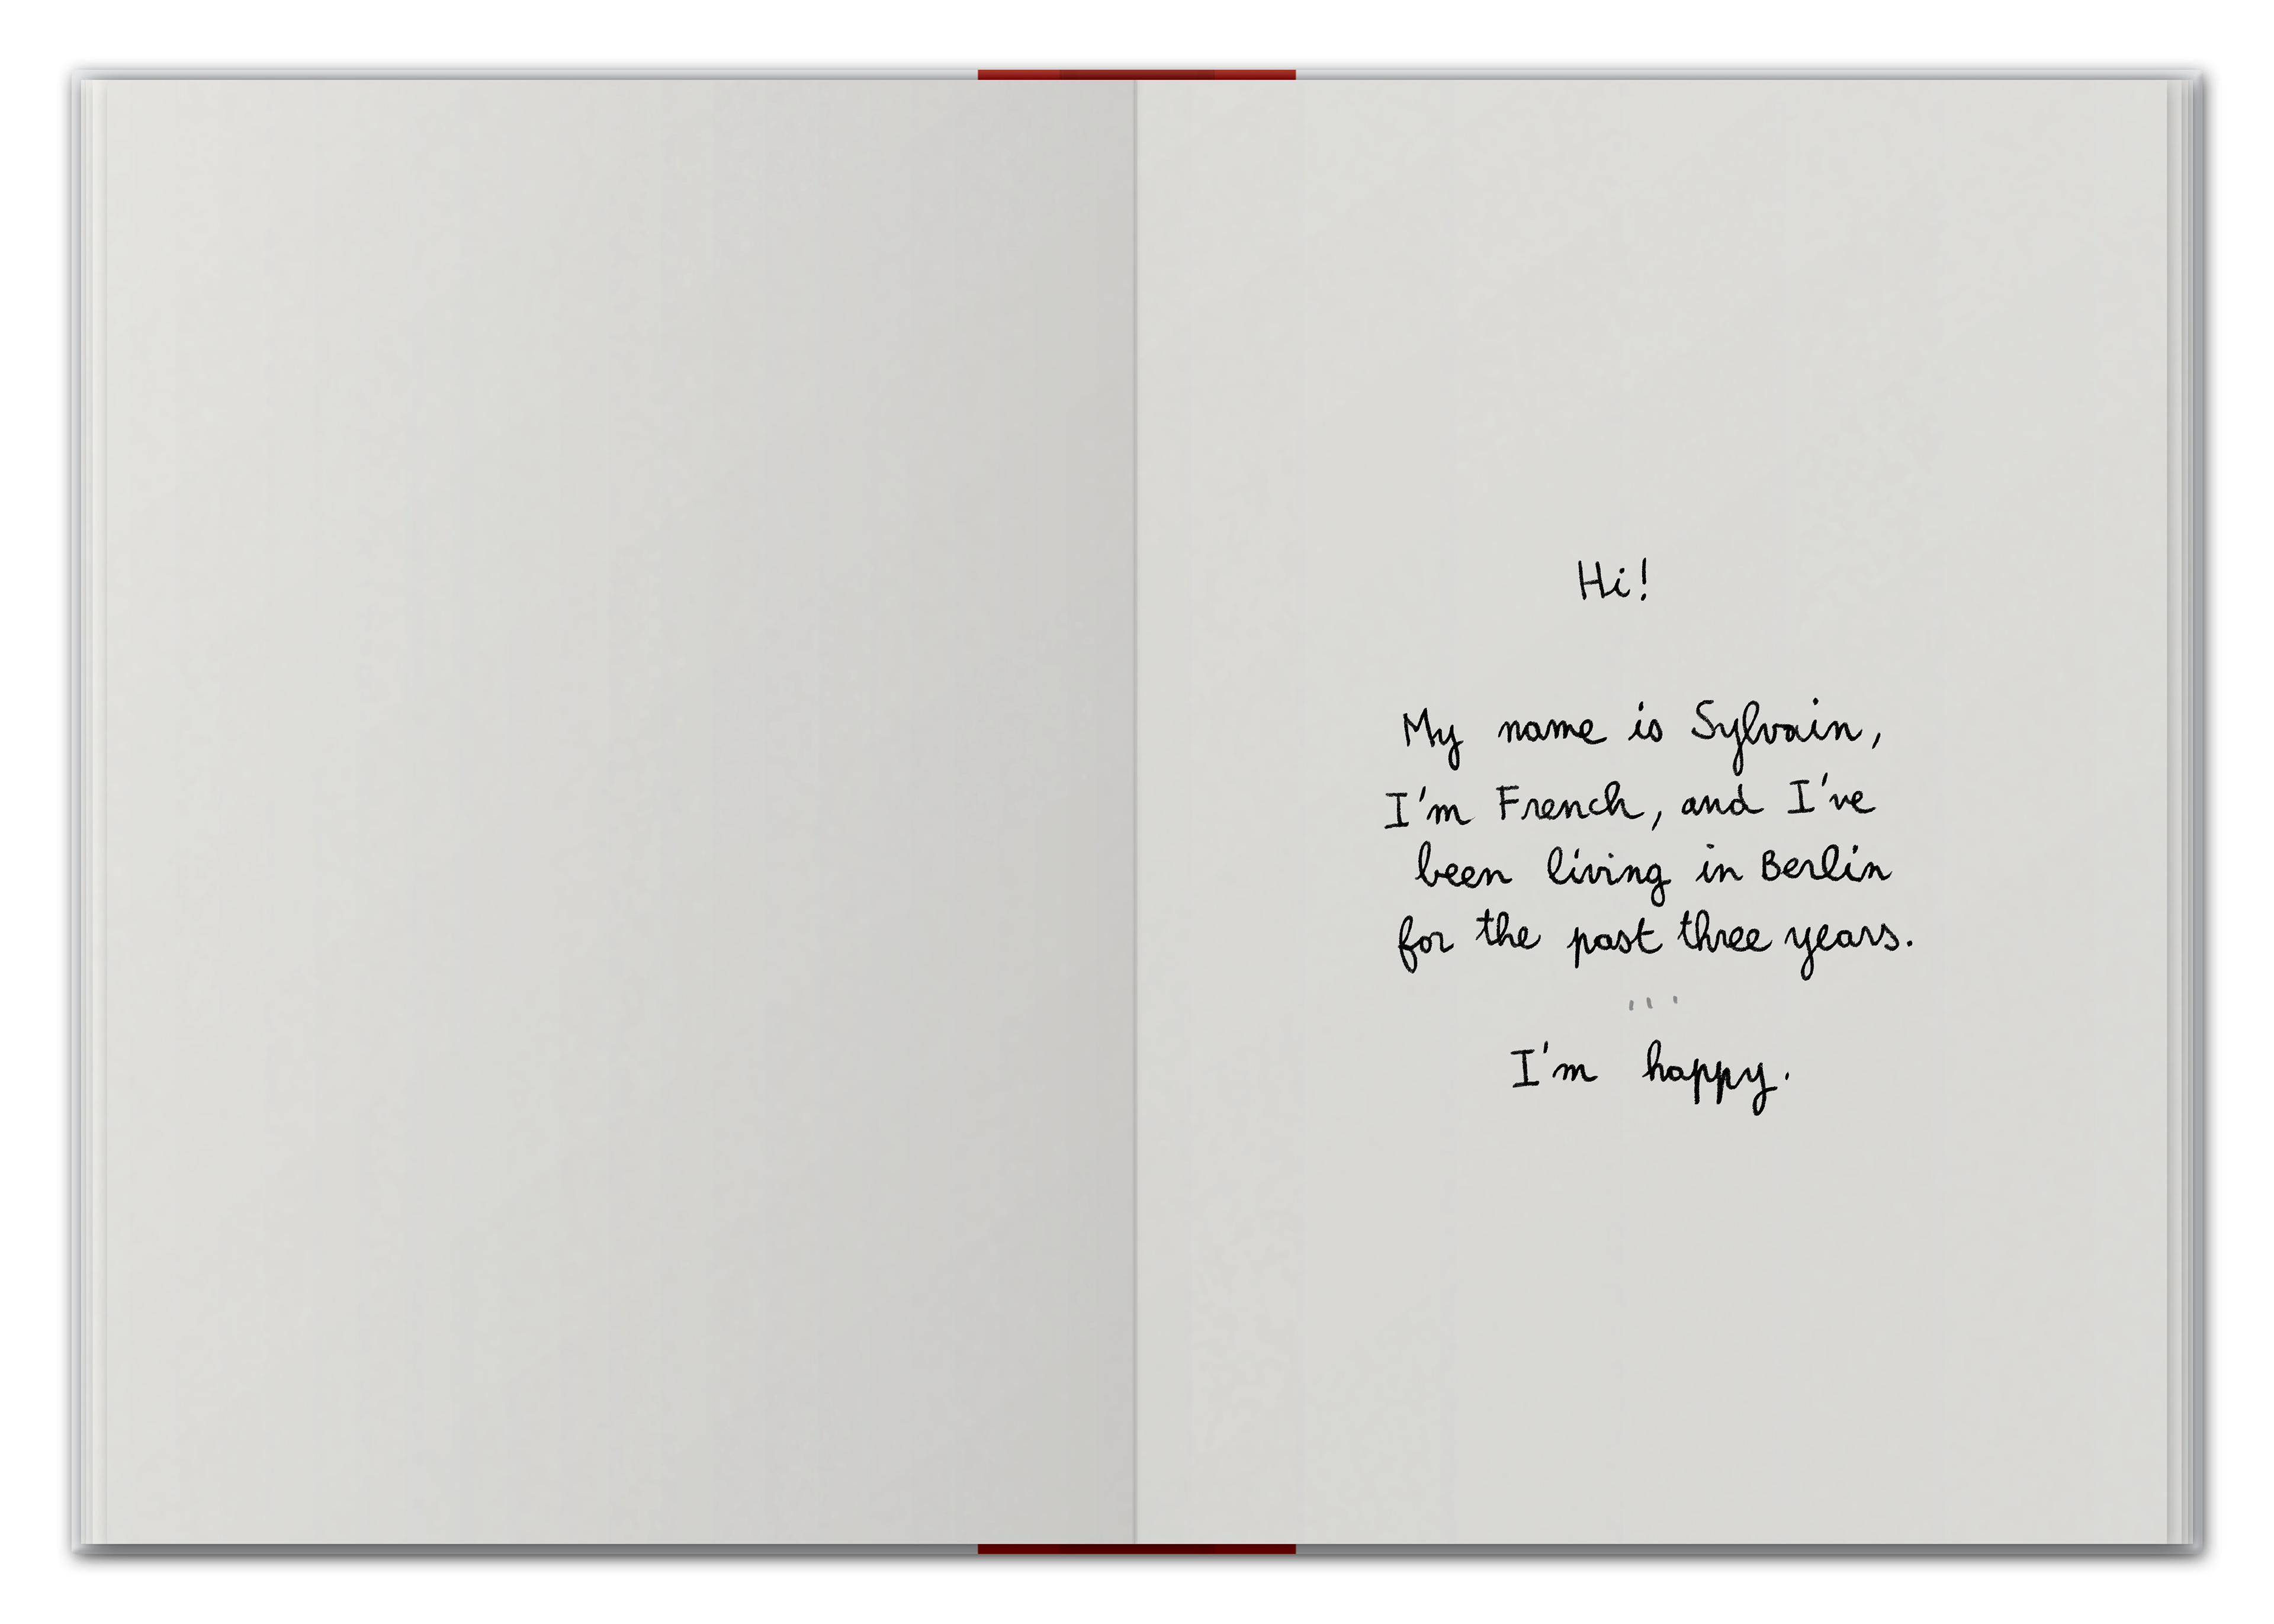 Hi!
My name is Sylvain,
I'm French, and I've
been living in Berlin
for the past three years.
I'm happy.